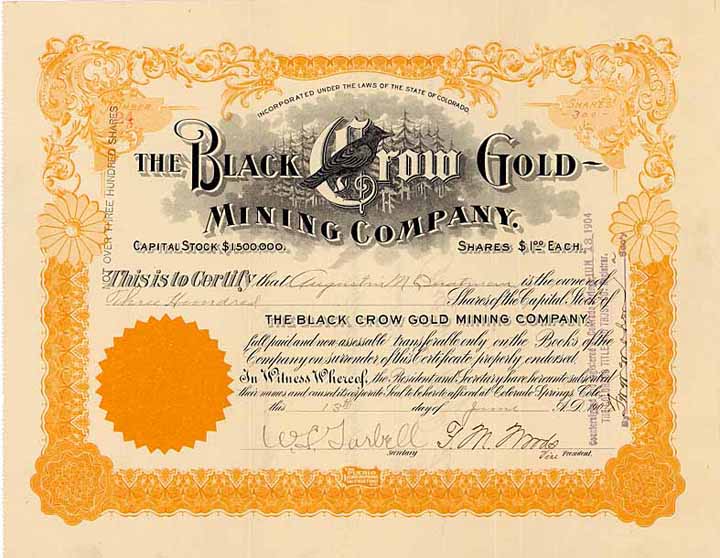 NUMBER
SHARES
300
INCORPORATED UNDER THE LAWS OF THE STATE OF COLORADO.
THE BLACK CROW GOLD
MINING COMPANY.
CAPITAL STOCK $1,500,000. SHARES $1.00 EACH.
This is to Certify that Augustin M is the owner of
Three Hundred Shares of the Capital Stock of
THE BLACK CROW GOLD MINING COMPANY
full paid and non-assessable transferable only on the Books of the
Company on surrender of this Certificate properly endorsed.
In Witness Whereof, the President and Secretary have hereunto subscribed
their names and caused its corporate Seal to be hereto affixed at Colorado Springs, Colo.
this 13th day of June A.D. 190
W.P. Tarbell F. M. Woods
Secretary Vice President.
NOT OVER THREE HUNDRED SHARES
JUN 13 1904
Countersigned and Registered
THE COLORADO TITLE & TRUST CO. Registrar.
By
PUEBLO